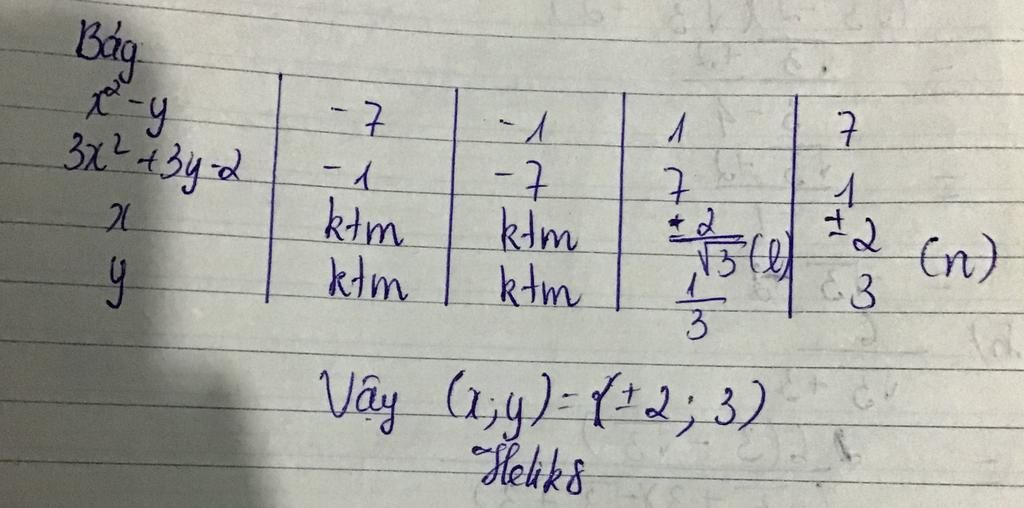 Bág
x² - y | -7 | -1 | 1 | 7
3x² + 3y - 2 | -1 | -7 | 7 | 1
x | ktm | ktm | ±2/√3 (l) | ±2 (n)
y | ktm | ktm | 1/3 | 3
Vậy (x;y) = (±2; 3)
~Helik8